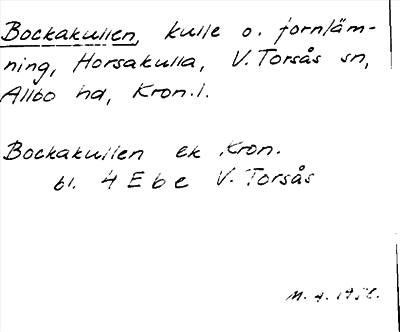 Bockakullen, kulle o. fornläm-
ning, Horsakulla, V. Torsås sn,
Allbo hd, Kron. l.
Bockakullen ek Kron.
bl. 4 E b e V. Torsås
M. 4.